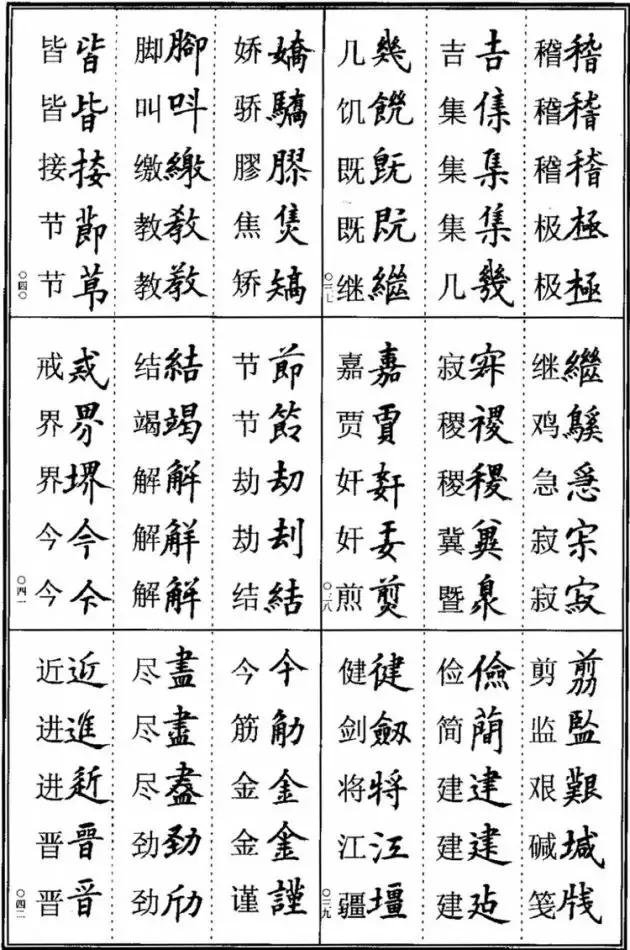 稽稽
稽稽
稽稽
极極
极極
吉吉
集集
集集
集集
几幾
几幾
饥饑
既既
既既
继繼
〇三七
继繼
鸡鷄
急急
寂宗
寂寂
寂寂
稷稷
稷稷
冀冀
暨暨
嘉嘉
贾賈
奸奸
奸奸
煎煎
〇三八
剪剪
监監
艰艱
碱堿
笺牋
俭儉
简蕳
建建
建建
建建
健健
剑劔
将将
江江
疆壃
〇三九
娇嬌
骄驕
膠膠
焦焦
矫矯
脚腳
叫呌
缴繳
教教
教教
皆皆
皆皆
接接
节節
节莭
〇四〇
节節
节節
劫劫
劫刦
结結
结結
竭竭
解解
解解
解解
戒戒
界界
界堺
今今
今今
〇四一
今今
筋筋
金金
金金
谨謹
尽盡
尽盡
尽盡
劲勁
劲劤
近近
进進
进進
晋晉
晋晋
〇四二